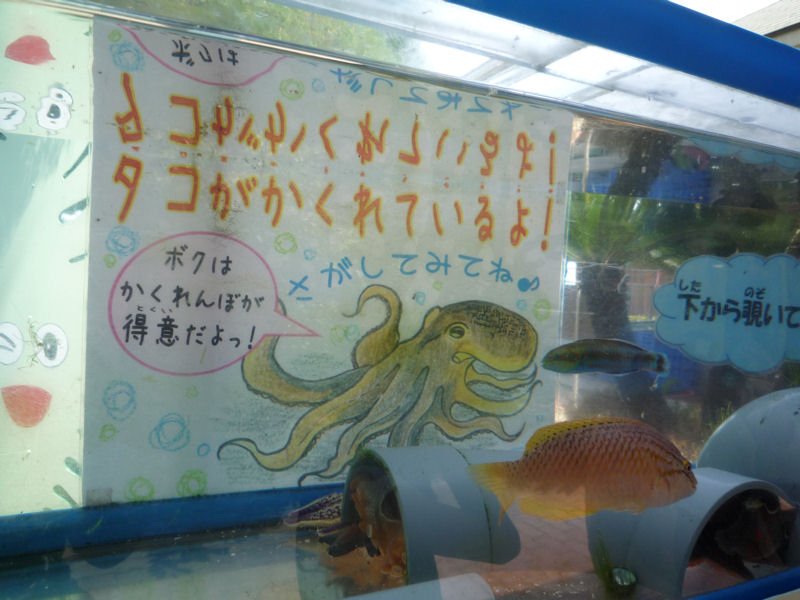 タコがかくれているよ!
さがしてみてね
ボクは
かくれんぼが
とくい
得意だよっ!
した のぞ
下から覗いて